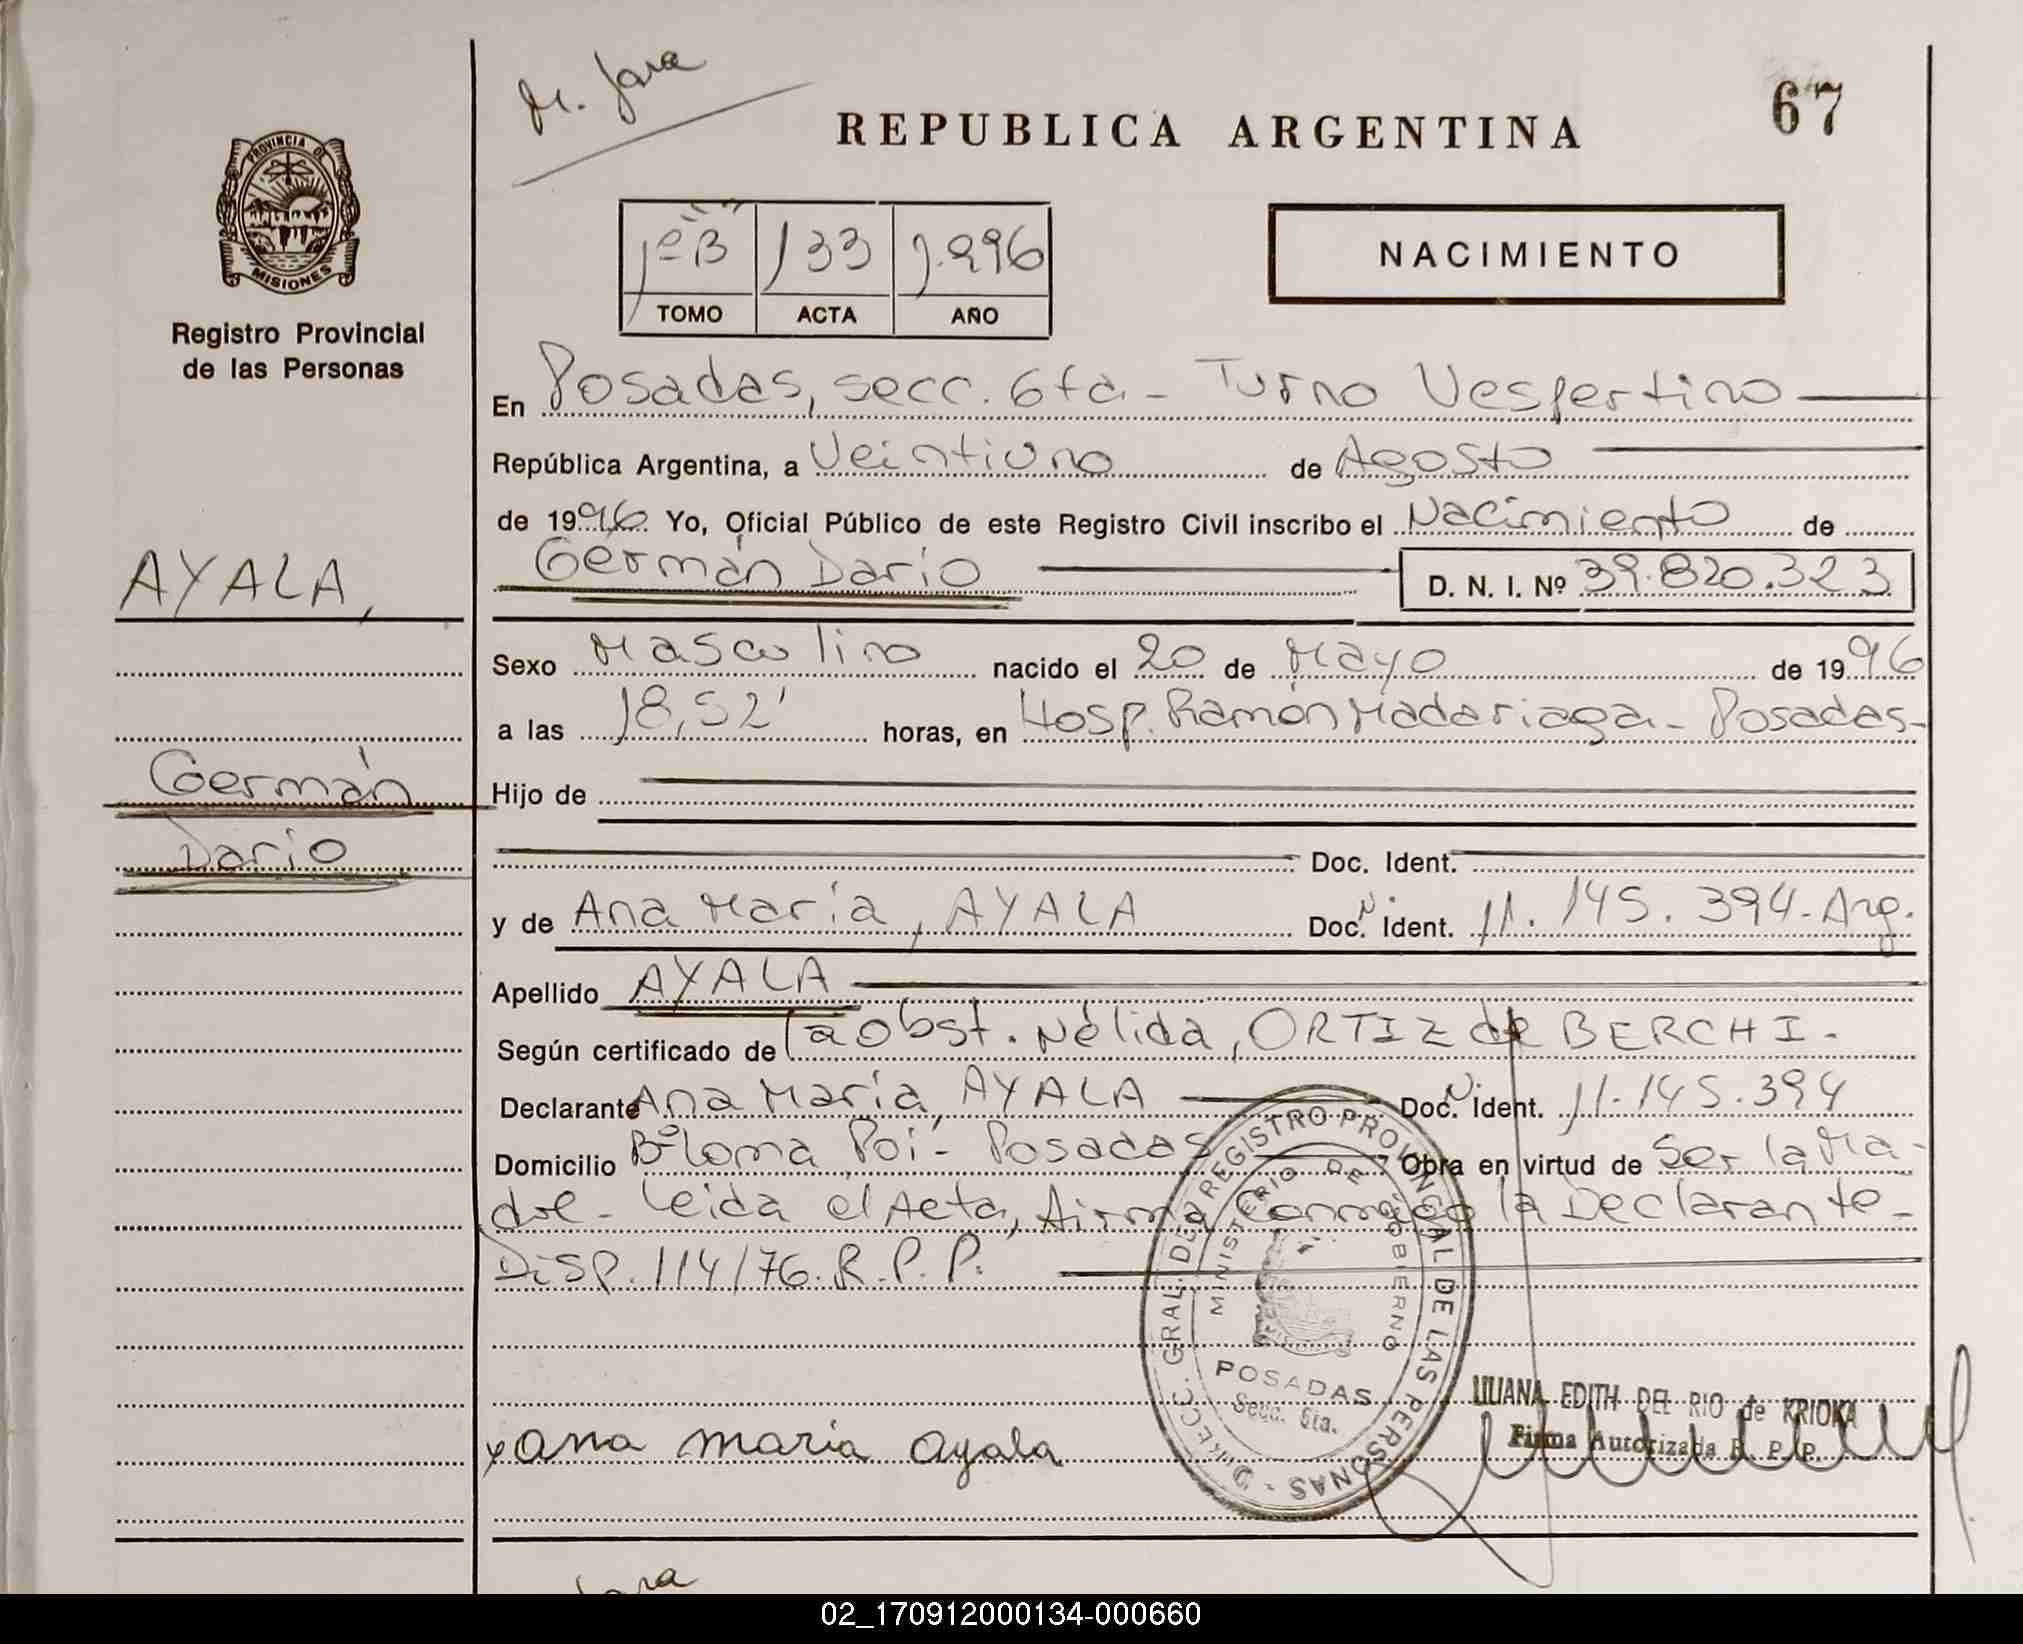 M. Jara
REPUBLICA ARGENTINA
67
PROVINCIA DE
MISIONES
Registro Provincial
de las Personas
1º B 133 1.996
TOMO ACTA AÑO
NACIMIENTO
En Posadas, secc. 6ta - Turno Vespertino
República Argentina, a Veintiuno de Agosto
de 1996 Yo, Oficial Público de este Registro Civil inscribo el Nacimiento de
AYALA,
Germán Dario D. N. I. Nº 39.820.323
Sexo Masculino nacido el 20 de Mayo de 1996
a las 18,52' horas, en Hosp. Ramón Madariaga - Posadas-
Germán
Dario
Hijo de
Doc. Ident.
y de Ana María, AYALA Doc. N. Ident. 11.145.394-Arg.
Apellido AYALA
Según certificado de la Obst. Nélida, ORTIZ de BERCHI.
Declarante Ana María, AYALA Doc. N. Ident. 11.145.394
Domicilio Bº Loma Poí - Posadas Obra en virtud de Ser la Ma-
dre - Leida el Acta, Firma Conmigo la Declarante-
Disp. 114/76. R.P.P.
DIRECC. GRAL. DEL REGISTRO PROVINCIAL DE LAS PERSONAS
MINISTERIO DE GOBIERNO
POSADAS
Secc. 6ta.
LILIANA EDITH DEL RIO de KRIOKA
Firma Autorizada R. P. P.
x Ana María Ayala
Jara
02_170912000134-000660